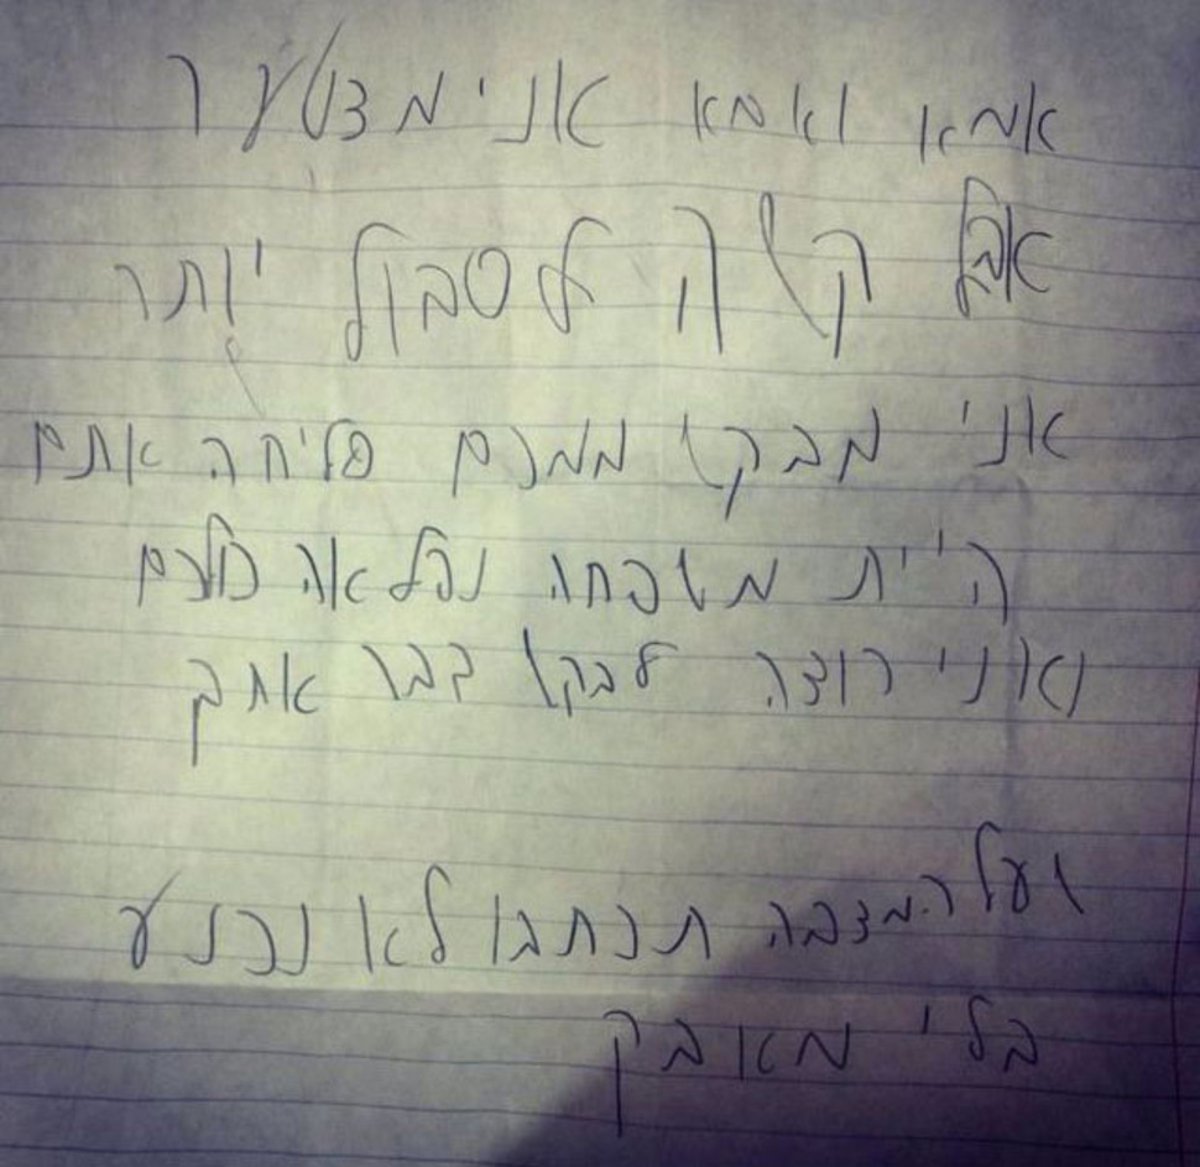 אמא ואמא אני מצטער
אבל קשה לסבול יותר
אני מבקש ממכם סליחה אתם
היית משפחה נפלאה כולכם
ואני רוצה לבקש דבר
ועל המצבה תכתבו לא נכנע
בלי מאבק